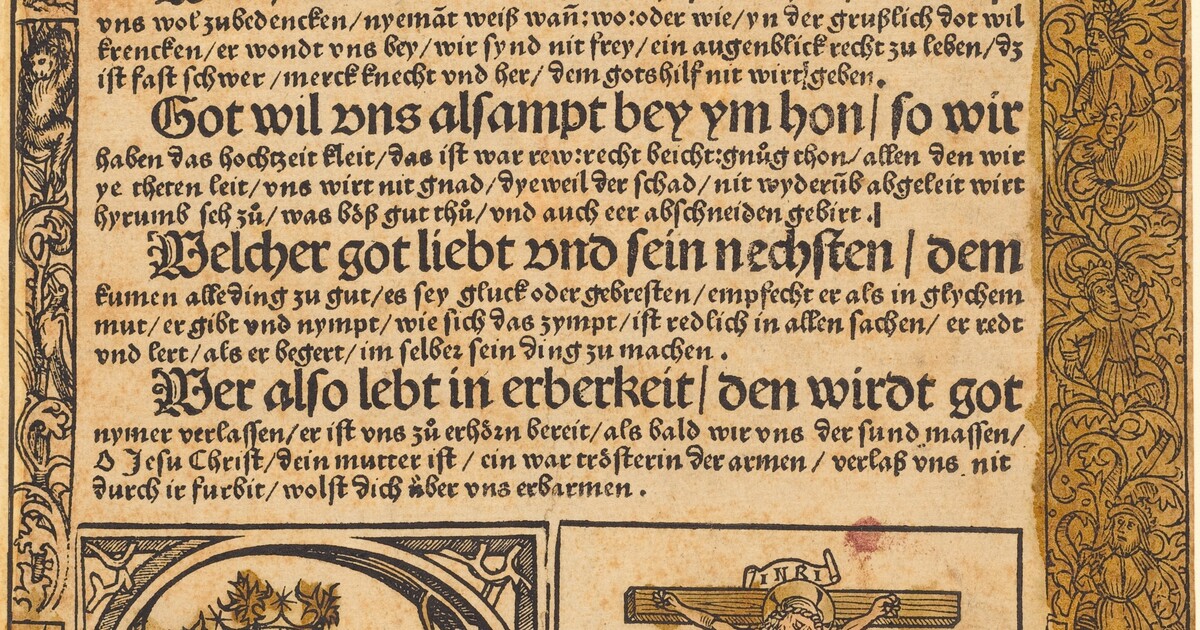 vns wol zubedencken/nyemāt weiß wañ:wo:oder wie/yn der grußlich dot wil
krencken/er wondt vns bey/wir synd nit frey/ein augenblick recht zu leben/dz
ist fast schwer/merck knecht vnd her/dem gotshilf nit wirt geben.
Got wil vns alsampt bey ym hon/so wir
haben das hochtzeit kleit/das ist war rew:recht beicht:gnůg thon/allen den wir
ye theten leit/vns wirt nit gnad/dyeweil der schad/nit wyderūb abgeleit wirt
hyrumb seh zů/was böß gut thů/vnd auch eer abschneiden gebirt.
Welcher got liebt vnd sein nechsten/dem
kumen alle ding zu gut/es sey gluck oder gebresten/empfecht er als in glychem
mut/er gibt vnd nympt/wie sich das zympt/ist redlich in allen sachen/er redt
vnd lert/als er begert/im selber sein ding zu machen.
Wer also lebt in erberkeit/den wirdt got
nymer verlassen/er ist vns zů erhörn bereit/als bald wir vns der sund massen/
O Jesu Christ/dein mutter ist/ein war trösterin der armen/verlaß vns nit
durch ir furbit/wolst dich über vns erbarmen.
INRI